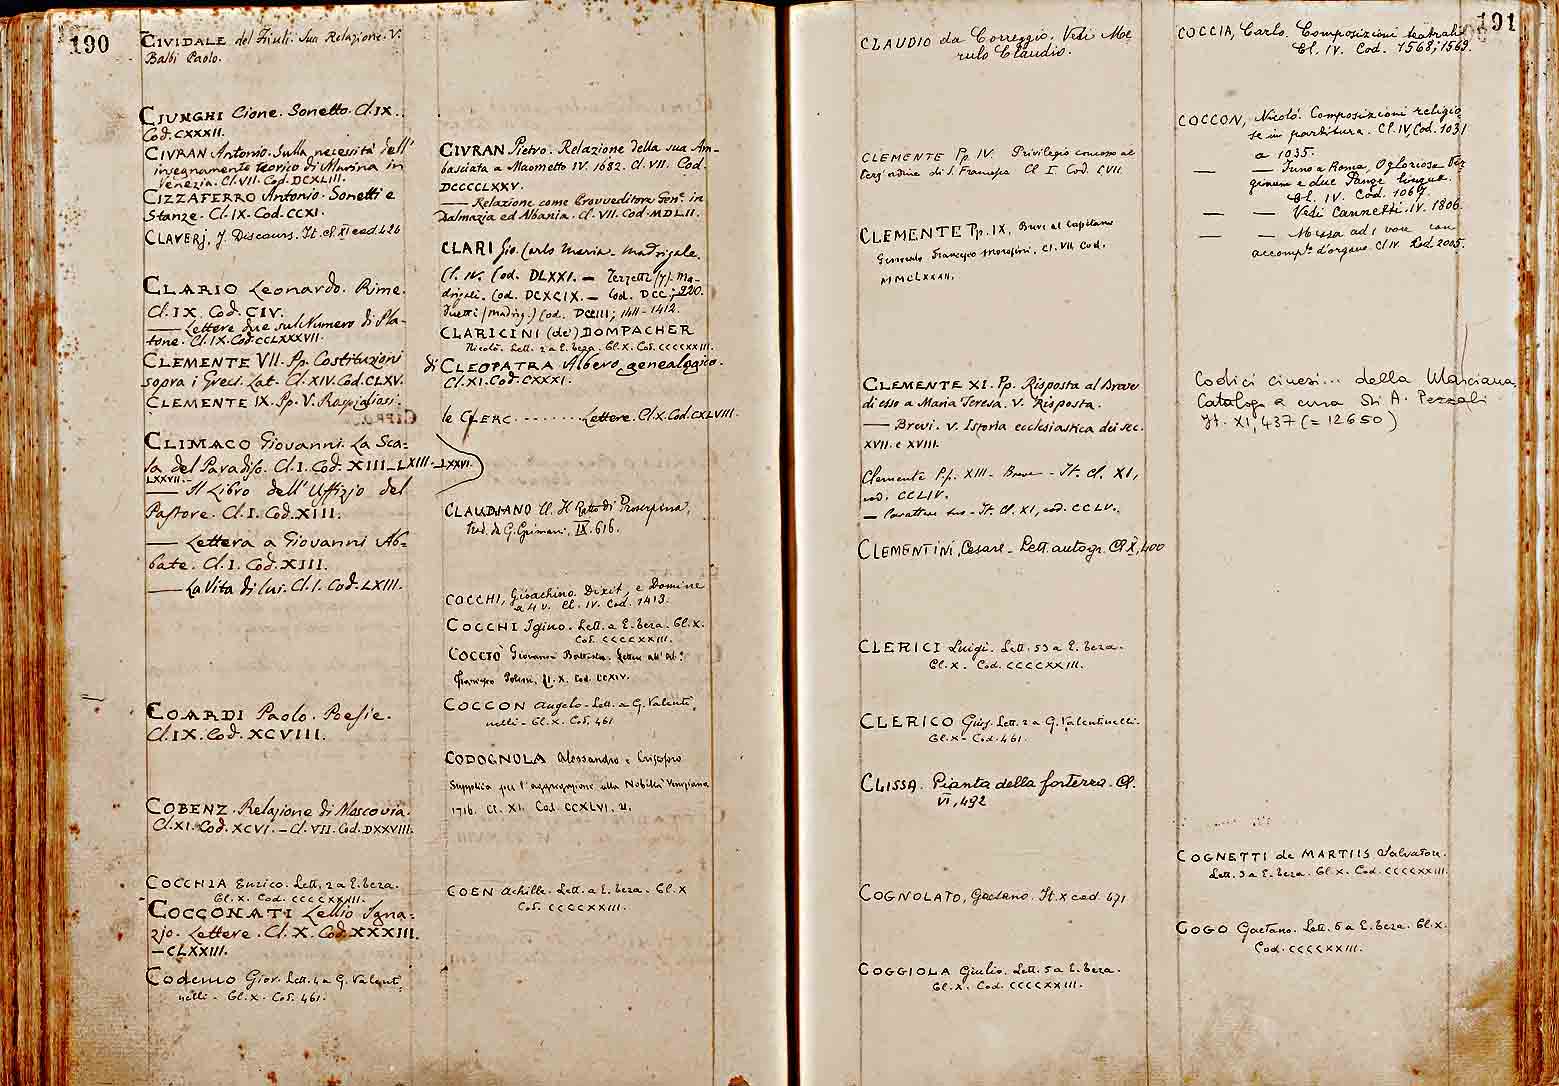 190
CIVIDALE del Friuli. Sua Relazione. V.
Balbi Paolo.
CIUNGHI Cione. Sonetto. Cl. IX.
Cod. CXXXII.
CIVRAN Antonio. Sulla necessità dell'
insegnamento teorico di Marina in
Venezia. Cl. VII. Cod. DCXLIII.
CIZZAFERRO Antonio. Sonetti e
Stanze. Cl. IX. Cod. CCXI.
CLAVERj, J. Discours. It. cl. XI cod. 426
CLARIO Leonardo. Rime.
Cl. IX. Cod. CIV.
— Lettere due sul Numero di Pla-
tone. Cl. IX. Cod. CCLXXXVII.
CLEMENTE VII. Pp. Costituzioni
sopra i Greci. Lat. Cl. XIV. Cod. CLXV.
CLEMENTE IX. Pp. V. Raspigliasi.
CLIMACO Giovanni. La Sca-
la del Paradiso. Cl. I. Cod. XIII–LXIII–LXXVI.
LXXVII.
— Il Libro dell'Uffizio del
Pastore. Cl. I. Cod. XIII.
— Lettera a Giovanni Ab-
bate. Cl. I. Cod. XIII.
— La Vita di lui. Cl. I. Cod. LXIII.
COARDI Paolo. Poesie.
Cl. IX. Cod. XCVIII.
COBENZ. Relazione di Moscovia.
Cl. XI. Cod. XCVI. – Cl. VII. Cod. DXXVIII.
COCCHIA Enrico. Lett. 2 a E. Teza.
Cl. X. Cod. CCCCXXIII.
COCCONATI Lelio Igna-
zio. Lettere. Cl. X. Cod. XXXIII.
– CLXXIII.
CODEMO Giov. Lett. 4 a G. Valenti-
nelli – Cl. X. Cod. 461.
CIVRAN Pietro. Relazione della sua Am-
basciata a Maometto IV. 1682. Cl. VII. Cod.
DCCCCLXXV.
— Relazione come Provveditore Gen.e in
Dalmazia ed Albania. Cl. VII. Cod. MDLII.
CLARI Gio. Carlo Maria. Madrigale.
Cl. IV. Cod. DLXXI. – Terzetti (7). Ma-
drigali. Cod. DCXCIX. – Cod. DCC; 220.
duetti (madrig.) Cod. DCCIII; 1411-1412.
CLARICINI (de') DOMPACHER
Nicolò. Lett. 2 a E. Teza. Cl. X. Cod. CCCCXXIII.
di CLEOPATRA Albero genealogico.
Cl. XI. Cod. CXXXI.
le CLERC . . . . . . . Lettere. Cl. X. Cod. CXLVIII.
CLAUDIANO Cl. Il Ratto di Proserpina,
trad. da G. Grimani, IX. 616.
COCCHI, Gioachino. Dixit, e Domine
a 4 v. Cl. IV. Cod. 1413.
COCCHI Igino. Lett. a E. Teza. Cl. X.
Cod. CCCCXXIII.
COCCIO Giovanni Battista. Lettere all'Ab.e
Francesco Cl. X. Cod. CCXIV.
COCCON Angelo. Lett. a G. Valenti-
nelli – Cl. X. Cod. 461
CODOGNOLA Alessandro e Crisostomo
Supplica per l'aggregazione alla Nobiltà Veneziana
1716. Cl. XI. Cod. CCXLVI, 21.
COEN Achille. Lett. a E. Teza. Cl. X
Cod. CCCCXXIII.
CLAUDIO da Correggio. Vedi Me-
rulo Claudio.
CLEMENTE Pp. IV. Privilegio concesso al
terz'ordine di S. Francesco Cl. I. Cod. CVII
CLEMENTE Pp. IX, Brevi al Capitano
Generale Francesco Morosini, Cl. VII, Cod.
MMCLXXXII.
CLEMENTE XI. Pp. Risposta al Breve
di esso a Maria Teresa. V. Risposta.
— Brevi. V. Istoria ecclesiastica dei sec.
XVII. e XVIII.
Clemente P.p. XIII – Breve – It. Cl. XI,
cod. CCLIV.
— Carattere suo – It. Cl. XI, cod. CCLV.
CLEMENTINI, Cesare – Lett. autogr. Cl. X, 400
CLERICI Luigi. Lett. 53 a E. Teza.
Cl. X. Cod. CCCCXXIII.
CLERICO Gius. Lett. 2 a G. Valentinelli.
Cl. X. Cod. 461.
CLISSA. Pianta della fortezza. Cl.
VI, 492
COGNOLATO, Gaetano. It. X cod 471
COGGIOLA Giulio. Lett. 5 a E. Teza.
Cl. X. Cod. CCCCXXIII.
191
COCCIA, Carlo. Composizioni teatrali
Cl. IV. Cod. 1568; 1569.
COCCON, Nicolò. Composizioni religio-
se in partitura. Cl. IV, Cod. 1031
a 1035.
— — Inno a Roma, O gloriosa Vir-
ginum e due Pange lingua.
Cl. IV. Cod. 1067.
— — Vedi Cannetti. IV. 1806.
— — Messa ad 1 voce con
accomp.to d'organo. Cl. IV. Cod. 2005.
Codici cinesi... della Marciana,
Catalogo a cura di A. Pezzali
It. XI, 437 (= 12650)
COGNETTI de MARTIIS Salvatore.
Lett. 3 a E. Teza. Cl. X. Cod. CCCCXXIII.
COGO Gaetano. Lett. 6 a E. Teza. Cl. X.
Cod. CCCCXXIII.